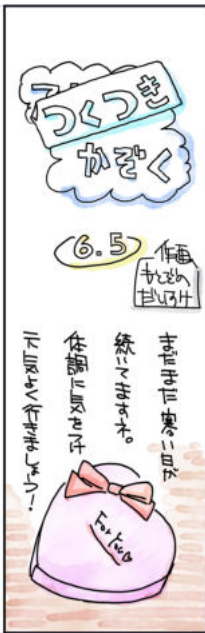 つくつき
かぞく
6.5
作画
もとぞの
だいすけ
まだまだ寒い日が
続いてますネ。
体調に気をつけ
元気よく行きましょう!
For You